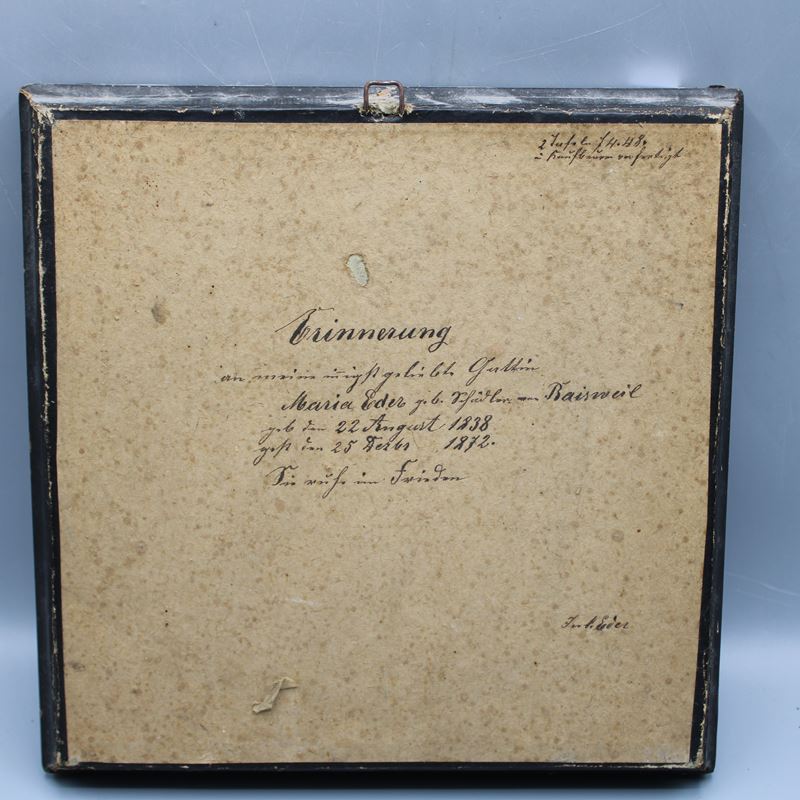 2 Tafeln f 4.48.
in Kaufbeuren verfertigt
Erinnerung
an meine innigst geliebte Gattin
Maria Eder geb. Schädler von Baisweil
geb den 22 August 1838
gest den 25 Dezbr 1872.
Sie ruhe im Frieden
Eder